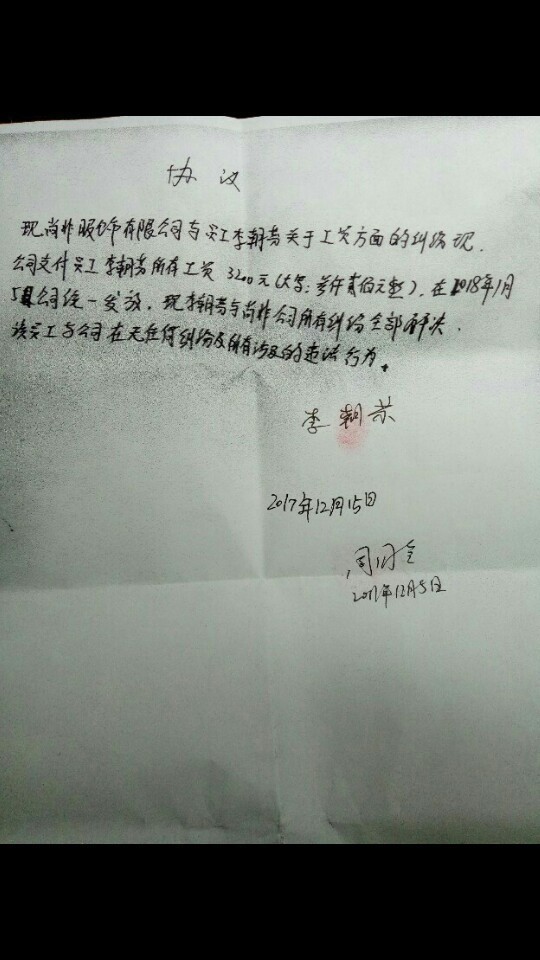 协议
现尚朴服饰有限公司与员工李朝芳关于工资方面的纠纷现.
公司支付员工李朝芳所有工资3200元(大写:叁仟贰佰元整).在2018年1月
5日公司统一发放.现李朝芳与尚朴公司所有纠纷全部解决.
该员工与公司在无任何纠纷及所有涉及的违法行为.
李朝芳
2017年12月15日
2017年12月5日